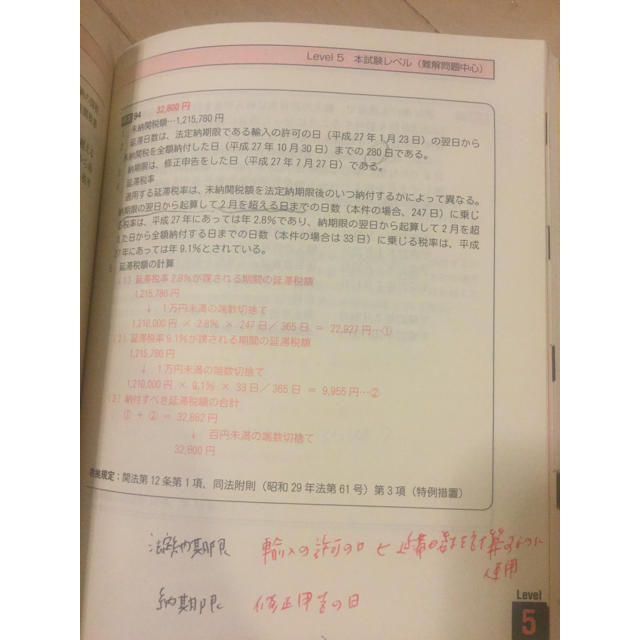 Level 5 本試験レベル（難解問題中心）
94 32,800円
未納関税額…1,215,780円
延滞日数は、法定納期限である輸入の許可の日（平成27年1月23日）の翌日から
未納関税を全額納付した日（平成27年10月30日）までの280日である。
納期限は、修正申告をした日（平成27年7月27日）である。
延滞税率
適用する延滞税率は、未納関税額を法定納期限後のいつ納付するかによって異なる。
納期限の翌日から起算して2月を超える日までの日数（本件の場合、247日）に乗じ
る税率は、平成27年にあっては年2.8%であり、納期限の翌日から起算して2月を超
えた日から全額納付する日までの日数（本件の場合は33日）に乗じる税率は、平成
27年にあっては年9.1%とされている。
延滞税額の計算
(1) 延滞税率2.8%が課される期間の延滞税額
1,215,780円
↓ 1万円未満の端数切捨て
1,210,000円 × 2.8% × 247日／365日 ＝ 22,927円…①
(2) 延滞税率9.1%が課される期間の延滞税額
1,215,780円
↓ 1万円未満の端数切捨て
1,210,000円 × 9.1% × 33日／365日 ＝ 9,955円…②
(3) 納付すべき延滞税額の合計
① ＋ ② ＝ 32,882円
↓ 百円未満の端数切捨て
32,800円
根拠規定：関法第12条第1項、同法附則（昭和29年法第61号）第3項（特例措置）
法定納期限 輸入の許可の日 と 延滞日数を計算するのに
使用
納期限 修正申告の日
Level
5